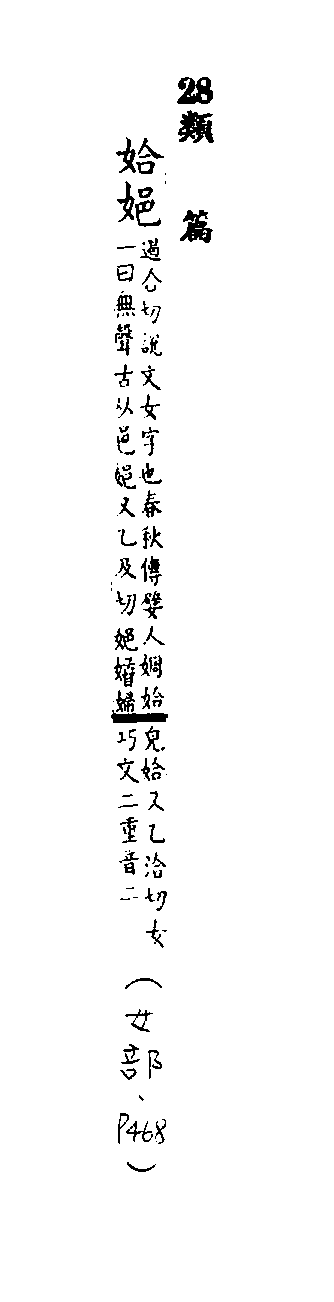 28類篇
姶㛕
遏合切說文女字也春秋傳嬖人婤姶
一曰無聲古从邑㛕又乙及切㛕婦
皃姶又乙洽切女
巧文二重音二
(女部、P468)